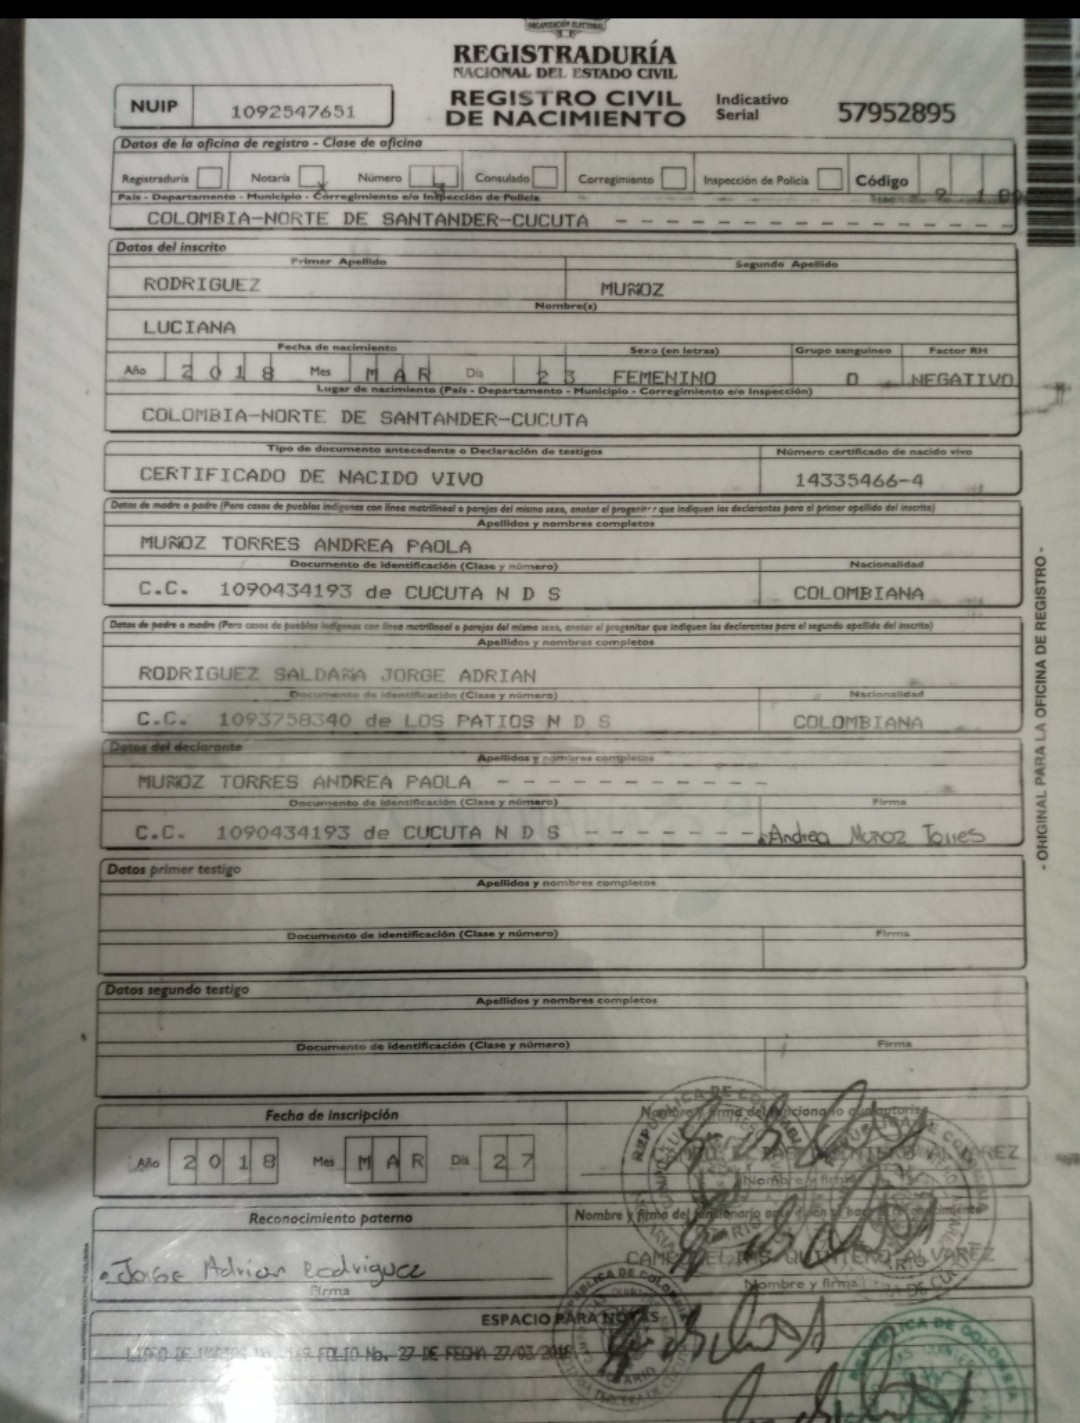 ORGANIZACIÓN ELECTORAL
REGISTRADURÍA
NACIONAL DEL ESTADO CIVIL
NUIP 1092547651
REGISTRO CIVIL
DE NACIMIENTO
Indicativo
Serial
57952895
Datos de la oficina de registro - Clase de oficina
Registraduría Notaría X Número 3 Consulado Corregimiento Inspección de Policía Código
País - Departamento - Municipio - Corregimiento e/o Inspección de Policía
COLOMBIA-NORTE DE SANTANDER-CUCUTA - - - - - - - - - - - - - - -
Datos del inscrito
Primer Apellido Segundo Apellido
RODRIGUEZ MUÑOZ
Nombre(s)
LUCIANA
Fecha de nacimiento Sexo (en letras) Grupo sanguíneo Factor RH
Año 2018 Mes MAR Día 23 FEMENINO O NEGATIVO
Lugar de nacimiento (País - Departamento - Municipio - Corregimiento e/o Inspección)
COLOMBIA-NORTE DE SANTANDER-CUCUTA
Tipo de documento antecedente o Declaración de testigos Número certificado de nacido vivo
CERTIFICADO DE NACIDO VIVO 14335466-4
Datos de madre o padre (Para casos de pueblos indígenas con línea matrilineal o parejas del mismo sexo, anotar el progenitor que indiquen los declarantes para el primer apellido del inscrito)
Apellidos y nombres completos
MUÑOZ TORRES ANDREA PAOLA
Documento de identificación (Clase y número) Nacionalidad
C.C. 1090434193 de CUCUTA N D S COLOMBIANA
Datos de padre o madre (Para casos de pueblos indígenas con línea matrilineal o parejas del mismo sexo, anotar el progenitor que indiquen los declarantes para el segundo apellido del inscrito)
Apellidos y nombres completos
RODRIGUEZ SALDAÑA JORGE ADRIAN
Documento de identificación (Clase y número) Nacionalidad
C.C. 1093758340 de LOS PATIOS N D S COLOMBIANA
Datos del declarante
Apellidos y nombres completos
MUÑOZ TORRES ANDREA PAOLA - - - - - - - - - -
Documento de identificación (Clase y número) Firma
C.C. 1090434193 de CUCUTA N D S - - - - - - - Andrea Muñoz Torres
Datos primer testigo
Apellidos y nombres completos
Documento de identificación (Clase y número) Firma
Datos segundo testigo
Apellidos y nombres completos
Documento de identificación (Clase y número) Firma
Fecha de inscripción Nombre y firma del funcionario que autoriza
Año 2018 Mes MAR Día 27
QUINTERO ALVAREZ
Nombre y firma
Reconocimiento paterno Nombre y firma del funcionario ante quien se hace el reconocimiento
Jorge Adrian Rodriguez
QUINTERO ALVAREZ
Firma Nombre y firma
ESPACIO PARA NOTAS
LIBRO DE VARIOS FOLIO No. 27 DE FECHA 27/03/2018
- ORIGINAL PARA LA OFICINA DE REGISTRO -
REPUBLICA DE COLOMBIA